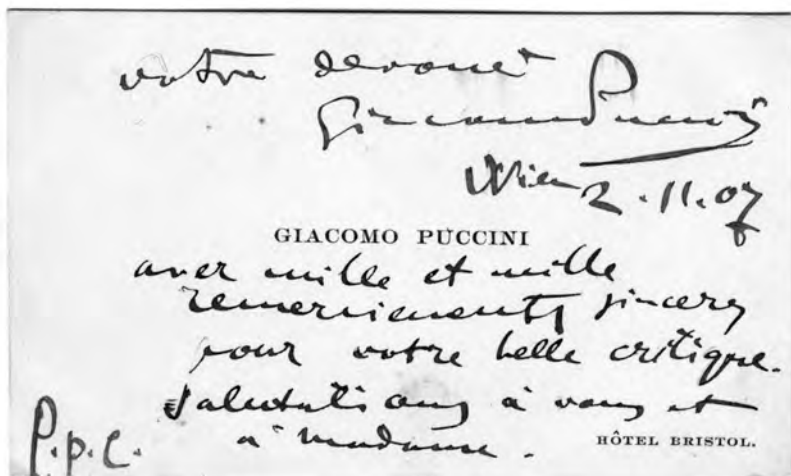 votre devoué
Giacomo Puccini
Wien 2.11.07
GIACOMO PUCCINI
avec mille et mille
remerciements sincers
pour votre belle critique.
Salutations à vous et
à madame.
HÔTEL BRISTOL.
P.p.c.